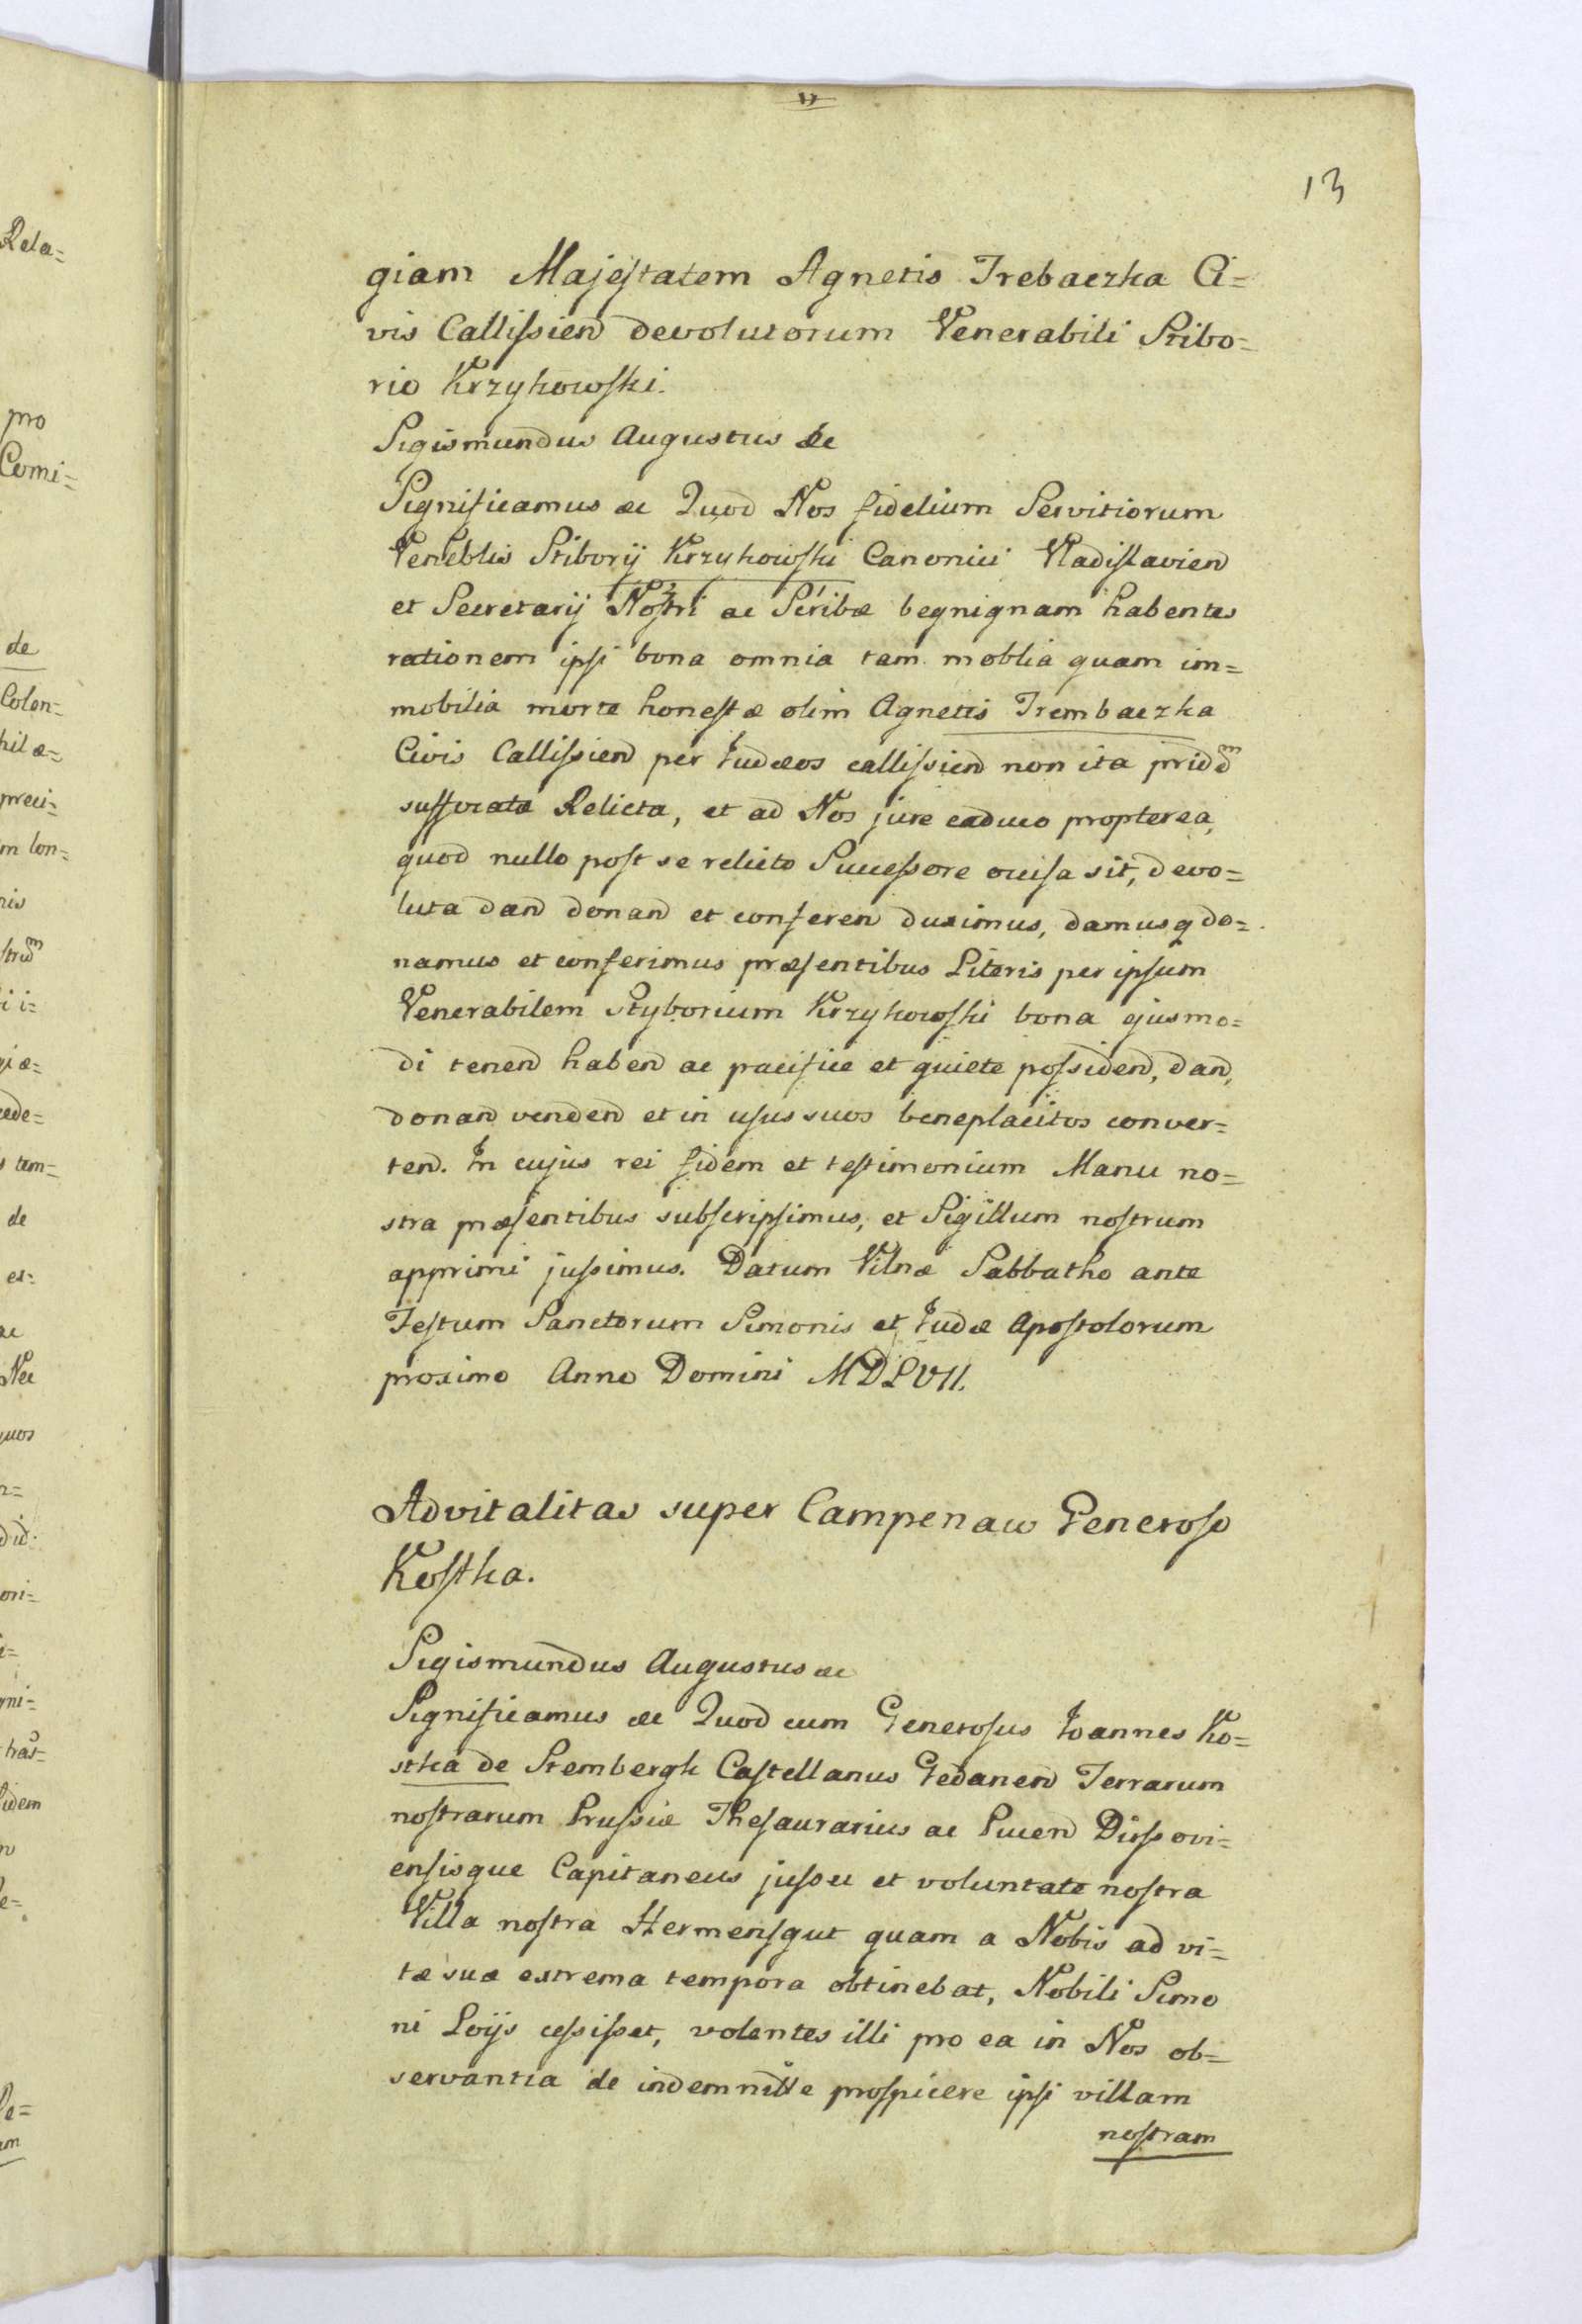 13
giam Majestatem Agnetis Trebaczka Ci=
vis Callissien devolutorum Venerabili Stibo=
rio Krzykowski.
Sigismundus Augustus &c
Significamus &c Quod Nos fidelium Servitiorum
Veneblis Stiborij Krzykowski Canonici Vladislavien
et Secretarij Nostri ac Scribæ begnignam habentes
rationem ipsi bona omnia tam moblia quam im=
mobilia morte honestæ olim Agnetis Trembaczka
Civis Callissien per Judæos callissien non ita pridem
suffocatæ Relicta, et ad Nos jure caduco propterea,
quod nullo post se relicto Successore occisa sit, devo=
luta dan donan et conferen duximus, damusq do=
namus et conferimus præsentibus Literis per ipsum
Venerabilem Styborium Krzykowski bona ejusmo=
di tenen haben ac pacifice et quiete possiden, dan,
donan venden et in usus suos beneplacitos conver=
ten. In cujus rei fidem et testimonium Manu no=
stra præsentibus subscripsimus, et Sigillum nostrum
apprimi jussimus. Datum Vilnæ Sabbatho ante
Festum Sanctorum Simonis et Judæ Apostolorum
proximo Anno Domini MDLVII.
Advitalitas super Campenaw Generoso
Kostka.
Sigismundus Augustus &c
Significamus &c Quod cum Generosus Joannes Ko=
stka de Stembergk Castellanus Gedanen Terrarum
nostrarum Prussiæ Thesaurarius ac Pucen Dirssovi=
ensisque Capitaneus jussu et voluntate nostra
Villa nostra Hermensgut quam a Nobis ad vi=
tæ suæ extrema tempora obtinebat, Nobili Simo
ni Loijs cessisset, volentes illi pro ea in Nos ob=
servantia de indemnitte prospicere ipsi villam
nostram
Rela=
pro
Comi=
de
Colen=
preci=
de
Nec
quos
fidem